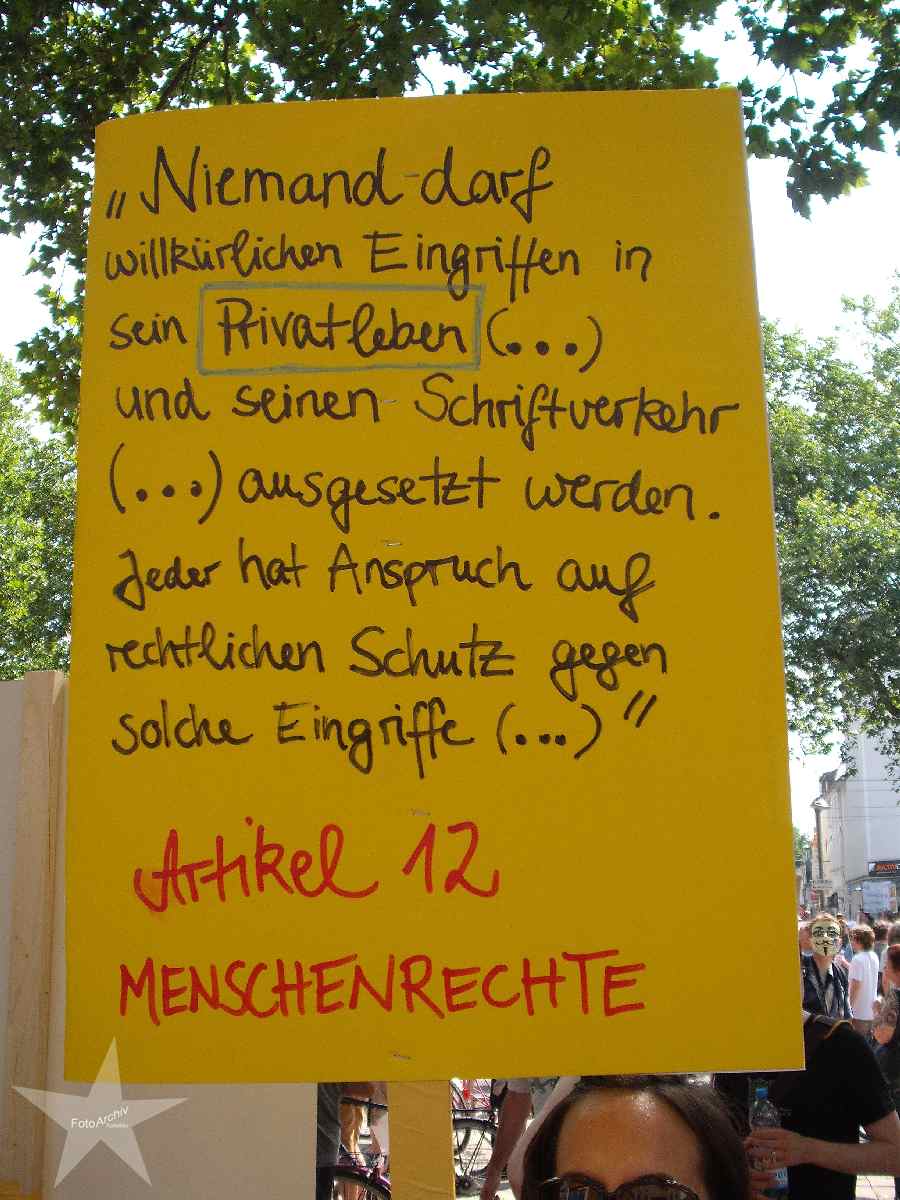 „Niemand darf
willkürlichen Eingriffen in
sein Privatleben (...)
und seinen Schriftverkehr
(...) ausgesetzt werden.
Jeder hat Anspruch auf
rechtlichen Schutz gegen
solche Eingriffe (...)"
Artikel 12
MENSCHENRECHTE
FotoArchiv